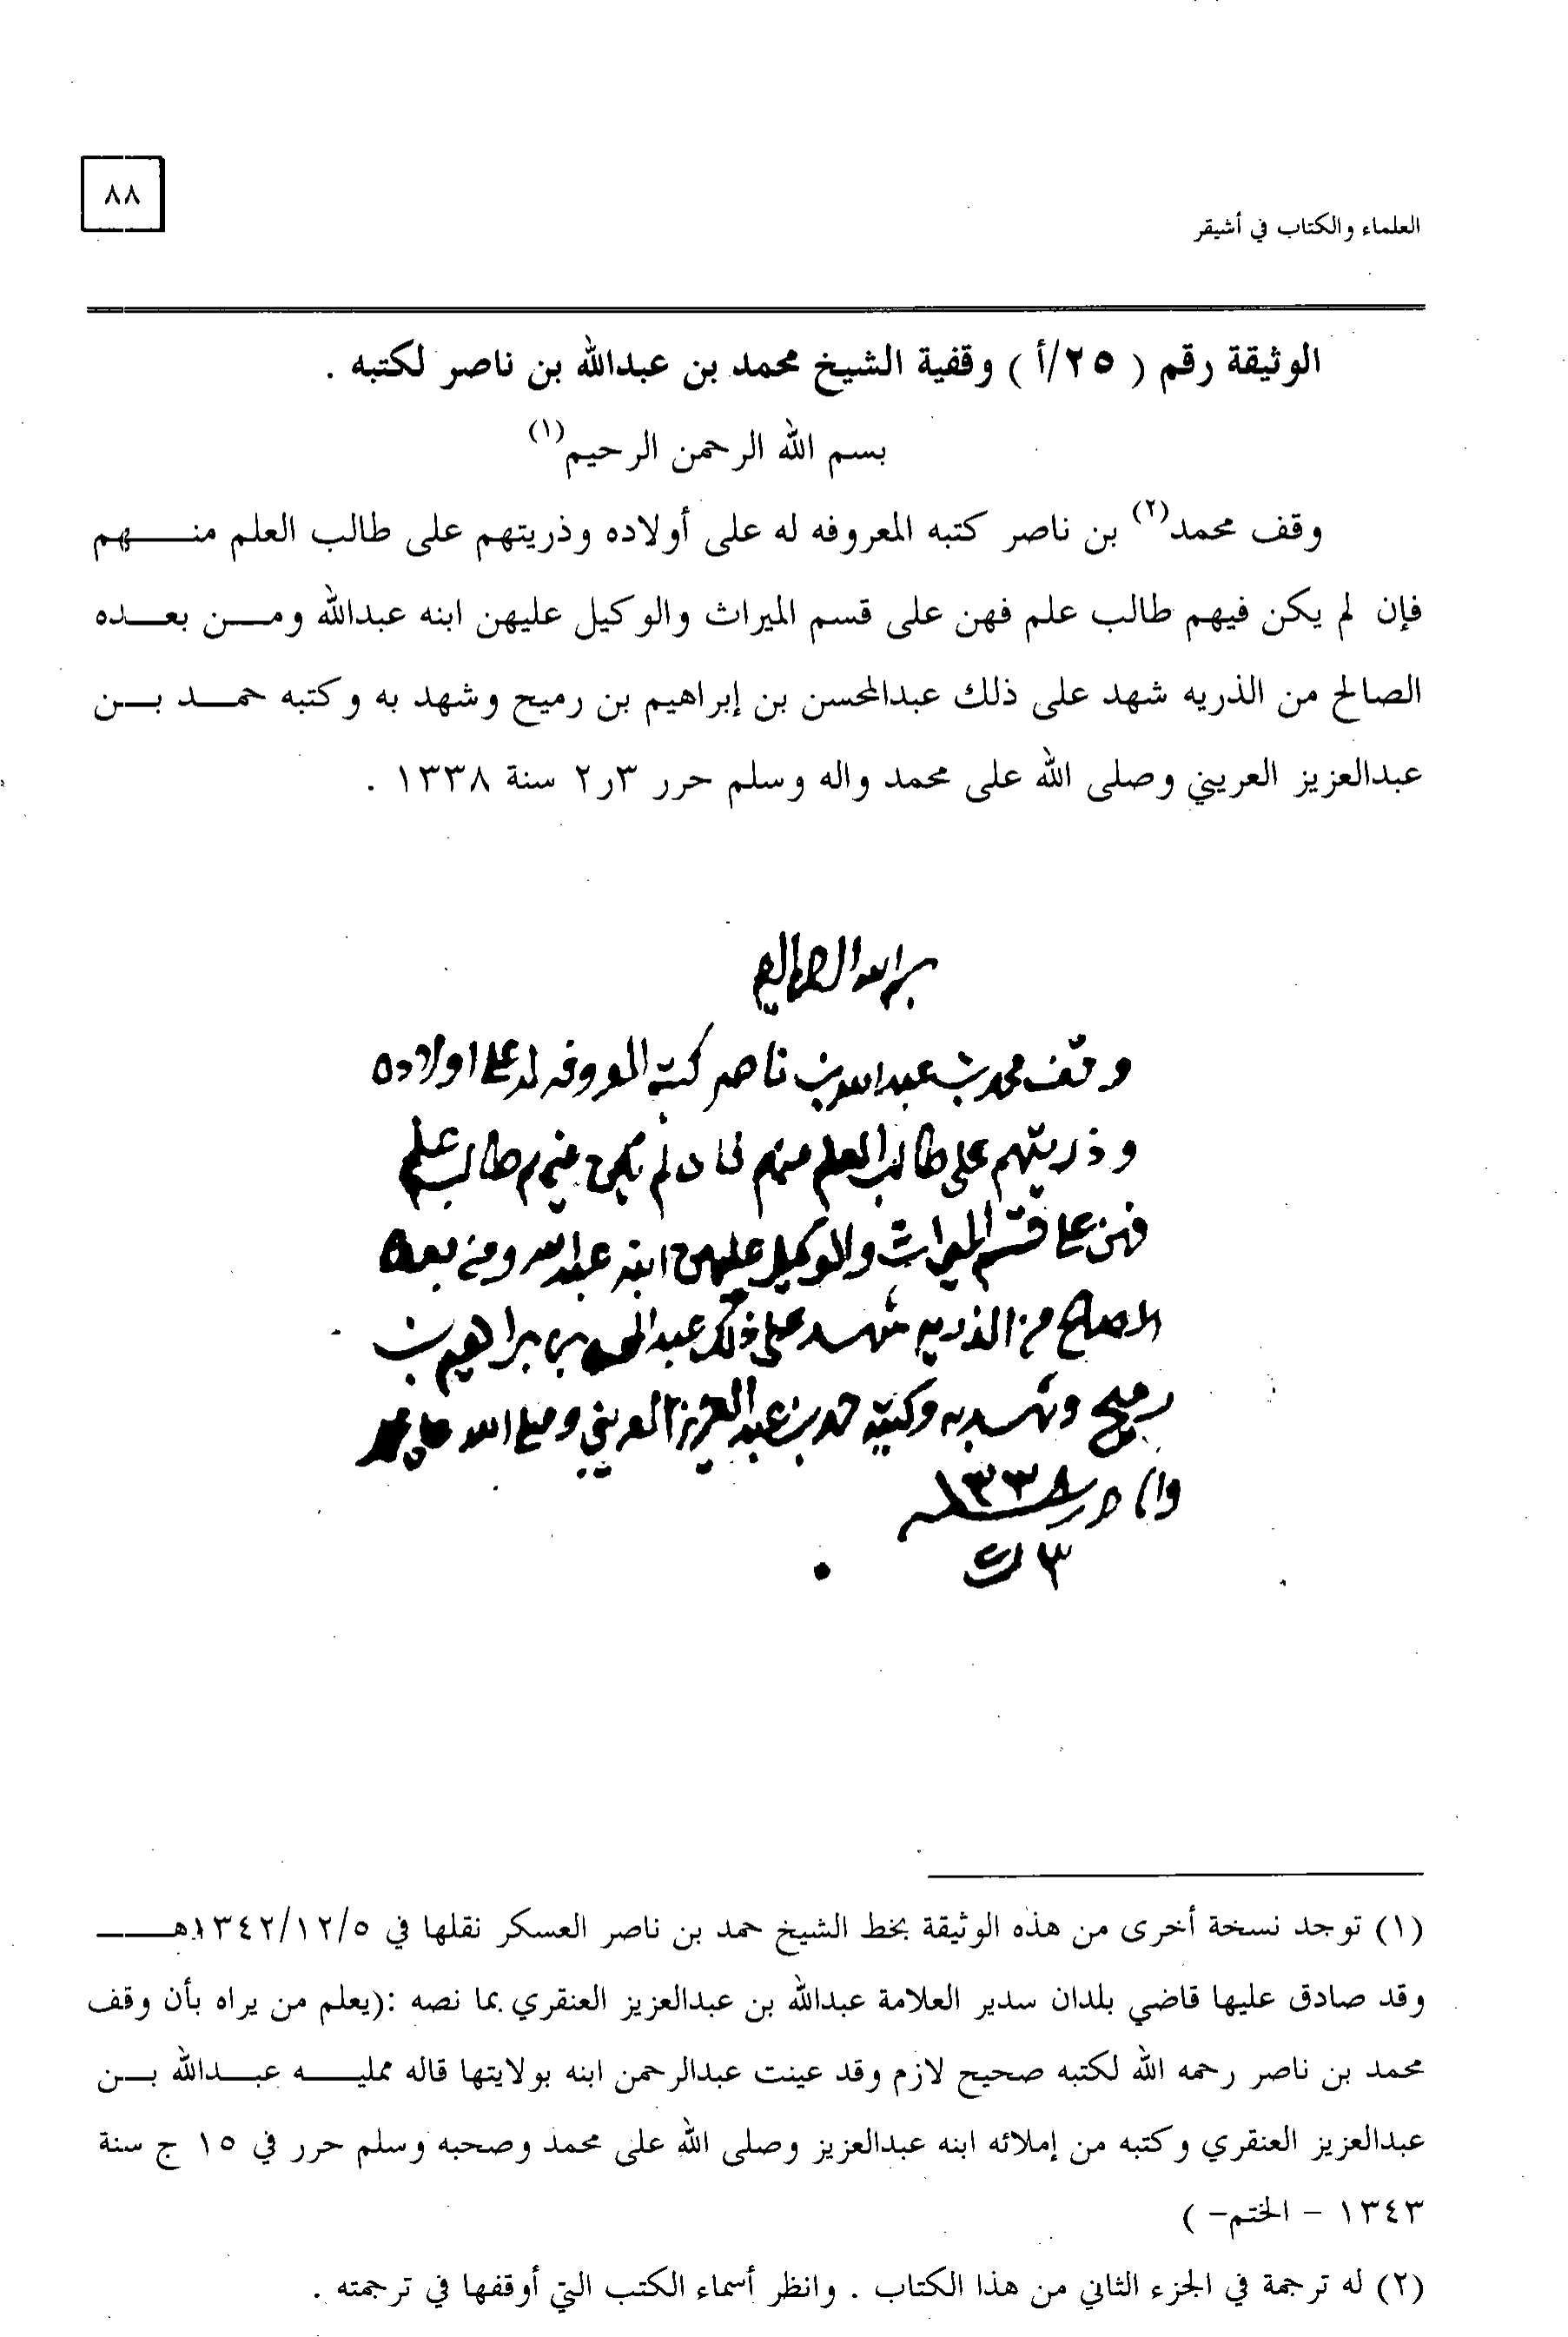 ٨٨
العلماء والكتاب في أشيقر
الوثيقة رقم ( ٢٥/أ ) وقفية الشيخ محمد بن عبدالله بن ناصر لكتبه .
بسم الله الرحمن الرحيم(١)
وقف محمد(٢) بن ناصر كتبه المعروفه له على أولاده وذريتهم على طالب العلم منهم
فإن لم يكن فيهم طالب علم فهن على قسم الميراث والوكيل عليهن ابنه عبدالله ومن بعده
الصالح من الذريه شهد على ذلك عبدالمحسن بن إبراهيم بن رميح وشهد به وكتبه حمد بن
عبدالعزيز العريني وصلى الله على محمد واله وسلم حرر ٣ر٢ سنة ١٣٣٨ .
بسم الله الرحمن الرحيم
وقف محمد بن عبدالله بن ناصر كتبه المعروفه له على اولاده
وذريتهم على طالب العلم منهم فان لم يكن فيهم طالب علم
فهن على قسم الميراث والوكيل عليهن ابنه عبدالله ومن بعده
الصالح من الذريه شهد على ذلك عبدالمحسن بن ابراهيم بن
رميح وشهد به وكتبه حمد بن عبدالعزيز العريني وصلى الله على محمد
١٣٣٨
٣
(١) توجد نسخة أخرى من هذه الوثيقة بخط الشيخ حمد بن ناصر العسكر نقلها في ١٣٤٢/١٢/٥هـ
وقد صادق عليها قاضي بلدان سدير العلامة عبدالله بن عبدالعزيز العنقري بما نصه :(يعلم من يراه بأن وقف
محمد بن ناصر رحمه الله لكتبه صحيح لازم وقد عينت عبدالرحمن ابنه بولايتها قاله ممليه عبدالله بن
عبدالعزيز العنقري وكتبه من إملائه ابنه عبدالعزيز وصلى الله على محمد وصحبه وسلم حرر في ١٥ ج سنة
١٣٤٣ – الختم– )
(٢) له ترجمة في الجزء الثاني من هذا الكتاب . وانظر أسماء الكتب التي أوقفها في ترجمته .